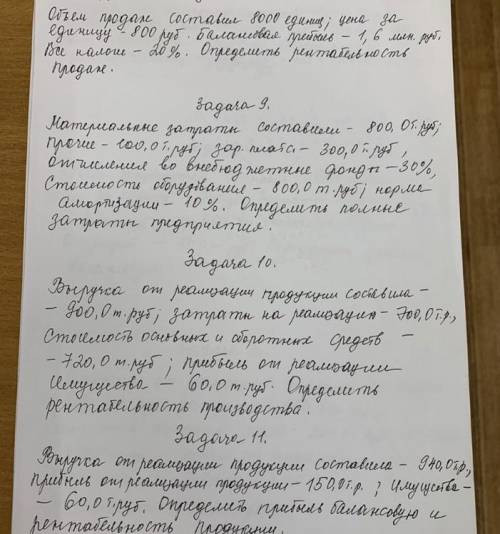 Объем продаж составил 8000 единиц; цена за
единицу - 800 руб. Балансовая прибыль - 1,6 млн. руб.
Все налоги - 20%. Определить рентабельность
продаж.
Задача 9.
Материальные затраты составили - 800,0т.руб;
прочие - 100,0т.руб; зар.плата - 300,0т.руб,
отчисления во внебюджетные фонды - 30%,
Стоимость оборудования - 800,0т.руб; норма
амортизации - 10%. Определить полные
затраты предприятия.
Задача 10.
Выручка от реализации продукции составила -
- 900,0т.руб; затраты на реализацию - 700,0т.р.,
Стоимость основных и оборотных средств -
- 720,0т.руб; прибыль от реализации
имущества - 60,0т.руб. Определить
рентабельность производства.
Задача 11.
Выручка от реализации продукции составила - 940,0т.р.,
прибыль от реализации продукции - 150,0т.р.; имущества -
- 60,0т.руб. Определить прибыль балансовую и
рентабельность продукции.